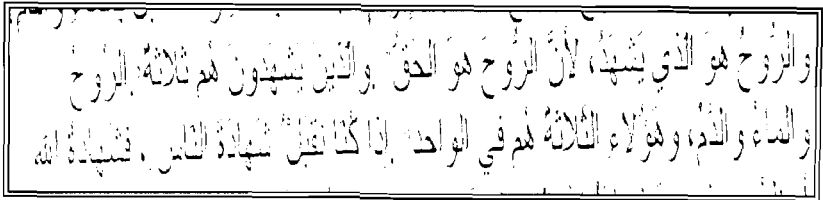 والرُّوحُ هوَ الَّذي يَشهَدُ، لأنَّ الرُّوحَ هوَ الحَقُّ. والَّذينَ يَشهَدونَ هُم ثلاثَةٌ: الرُّوحُ
والماءُ والدَّمُ، وهَؤُلاءِ الثَّلاثَةُ هُم في الواحدِ. إنا كُنَّا نَقبَلُ شَهادَةَ النَّاسِ، فشَهادَةُ الله